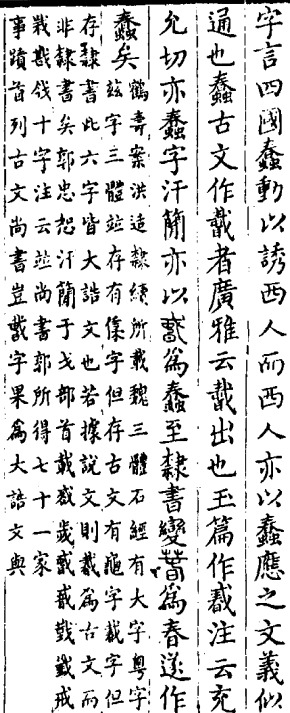 字言四國蠢動以誘西人而西人亦以蠢應之文義似
通也蠢古文作者廣雅云出也玉篇作注云充
允切亦蠢字汗簡亦以為蠢至隸書變萅為春遂作
蠢矣
鶴壽案洪适隸續所載魏三體石經有大字粵字
茲字三體竝存有字但存古文有龜字字但
存隸書此六字皆大誥文也若據說文則為古文而
非隸書矣郭忠恕汗簡于戈部首載戒
十字注云竝尚書郭所得七十一家
事蹟首列古文尚書豈字果為大誥文與